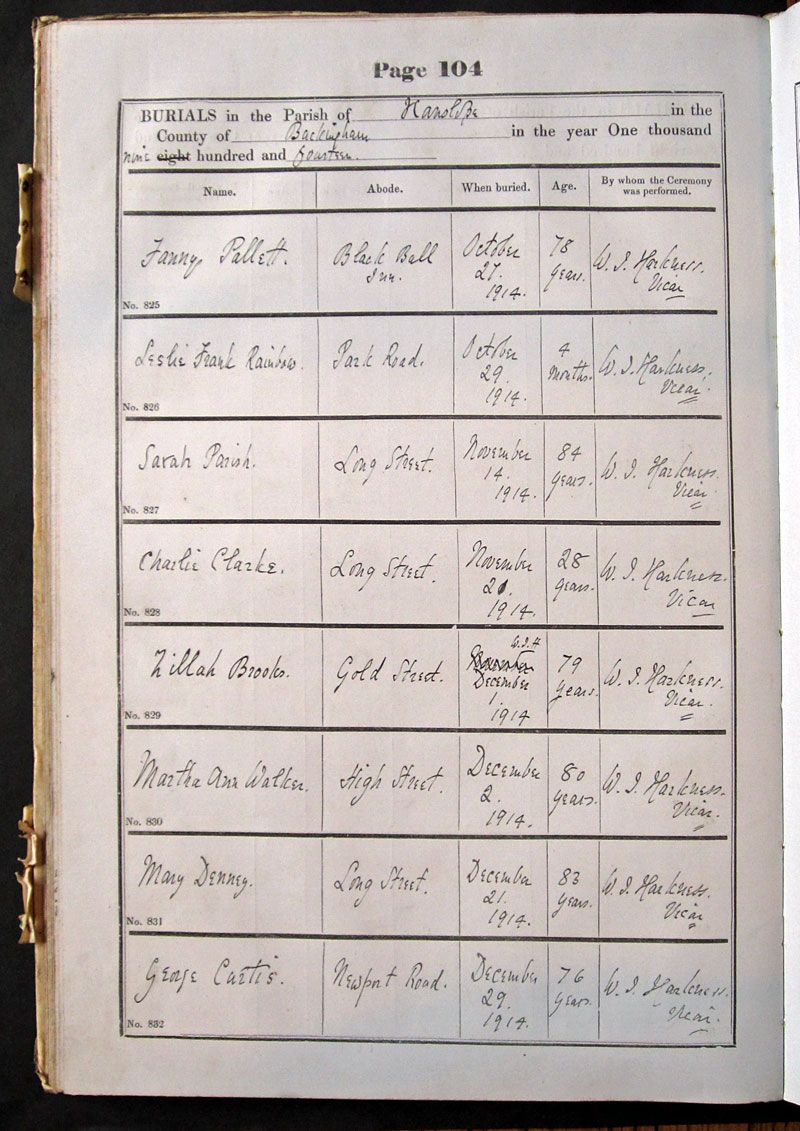 Page 104
BURIALS in the Parish of Hanslope in the
County of Buckingham in the year One thousand
nine eight hundred and fourteen.
Name. Abode. When buried. Age. By whom the Ceremony was performed.
Fanny Pallett. Black Ball Inn. October 27. 1914. 78 years. W. J. Harkness. Vicar
No. 825
Leslie Frank Rainbow. Park Road. October 29. 1914. 4 Months. W. J. Harkness, Vicar.
No. 826
Sarah Parish. Long Street. November 14. 1914. 84 years. W. J. Harkness. Vicar
No. 827
Charlie Clarke. Long Street. November 20. 1914. 28 years. W. J. Harkness. Vicar
No. 828
Zillah Brooks. Gold Street. W. J. H December 1. 1914 79 years. W. J. Harkness. Vicar.
No. 829
Martha Ann Walker. High Street. December 2. 1914. 80 years. W. J. Harkness. Vicar.
No. 830
Mary Denney. Long Street. December 21. 1914. 83 years. W. J. Harkness. Vicar
No. 831
George Curtis. Newport Road. December 29. 1914. 76 years. W. J. Harkness. Vicar.
No. 832